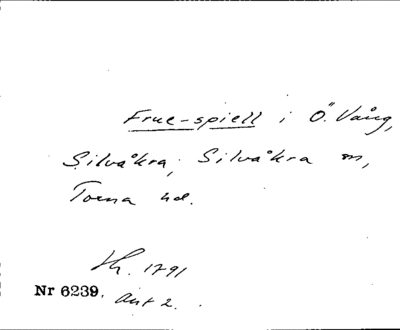 Frue-spiell i Ö. Vång,
Silvåkra, Silvåkra sn,
Torna hd.
Lh. 1791
Nr 6239. akt 2.